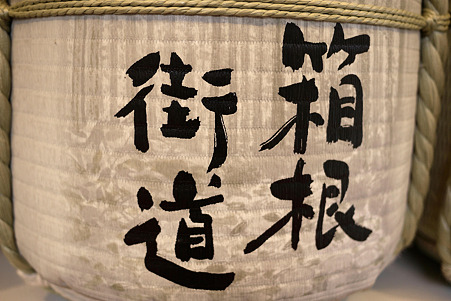 箱根
街道